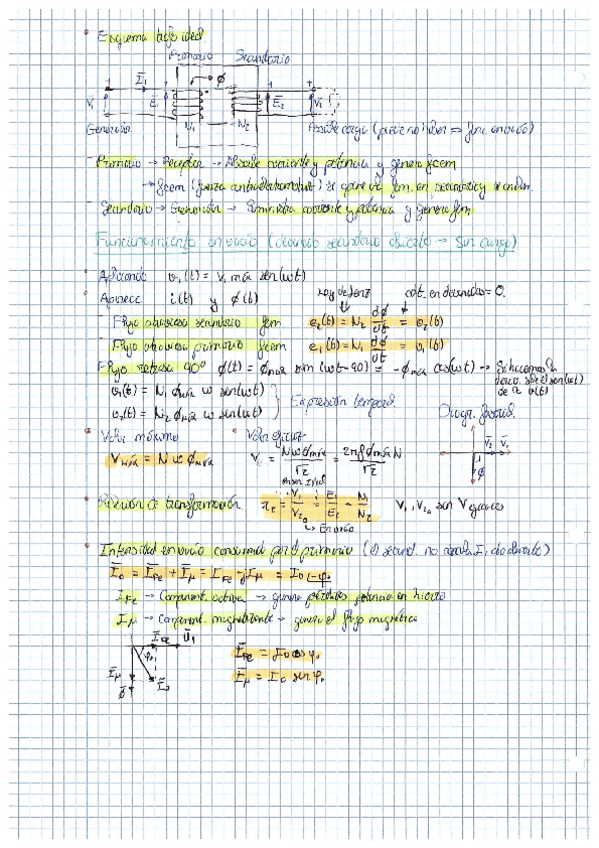 • Esquema trafo ideal
Primario Secundario
I₁ ϕ
V₁ E₁ E₂ V₂
N₁ N₂
Generador
Absorbe carga (puede no haber ⇒ func. en vacío)
Primario → Receptor → Absorbe corriente y potencia y genera fcem
→ fcem (fuerza contraelectromotriz) se opone
Secundario → Generador → Suministra corriente y potencia y genera fem
Funcionamiento en vacío (devanado secundario abierto → Sin carga)
• Aplicando v₁(t) = V₁máx sen(ωt)
• Aparece i(t) y ϕ(t) Ley de Lenz cdt. en devanados = 0.
Flujo atraviesa secundario fem e₂(t) = N₂ dϕ/dt = v₂(t)
Flujo atraviesa primario fcem e₁(t) = N₁ dϕ/dt = v₁(t)
Flujo retrasa 90° ϕ(t) = ϕmáx sen(ωt-90) = -ϕmáx cos(ωt) → Si hacemos la
v₁(t) = N₁ ϕmáx ω sen(ωt)
v₂(t) = N₂ ϕmáx ω sen(ωt)
Expresión temporal. Diagr. fasorial.
• Valor máximo • Valor eficaz
Vmáx = N ω ϕmáx V = Nωϕmáx/√2 = 2πfϕmáxN/√2
V₂ V₁
ϕ
• Relación de transformación r_t = V₁/V₂₀ = E₁/E₂ = N₁/N₂ V₁, V₂₀ son V eficaces
→ En vacío
• Intensidad en vacío consumida por el primario (el secund. no circula I, abierto)
I₀ = I_Fe + I_μ = I_Fe - jI_μ = I₀ ∠-φ₀
I_Fe → Component. activa → genera pérdidas potencia en hierro
I_μ → Component. magnetizante → genera el flujo magnético
I_Fe U₁
φ₀
I_μ I₀
ϕ
I_Fe = I₀ cos φ₀
I_μ = I₀ sen φ₀